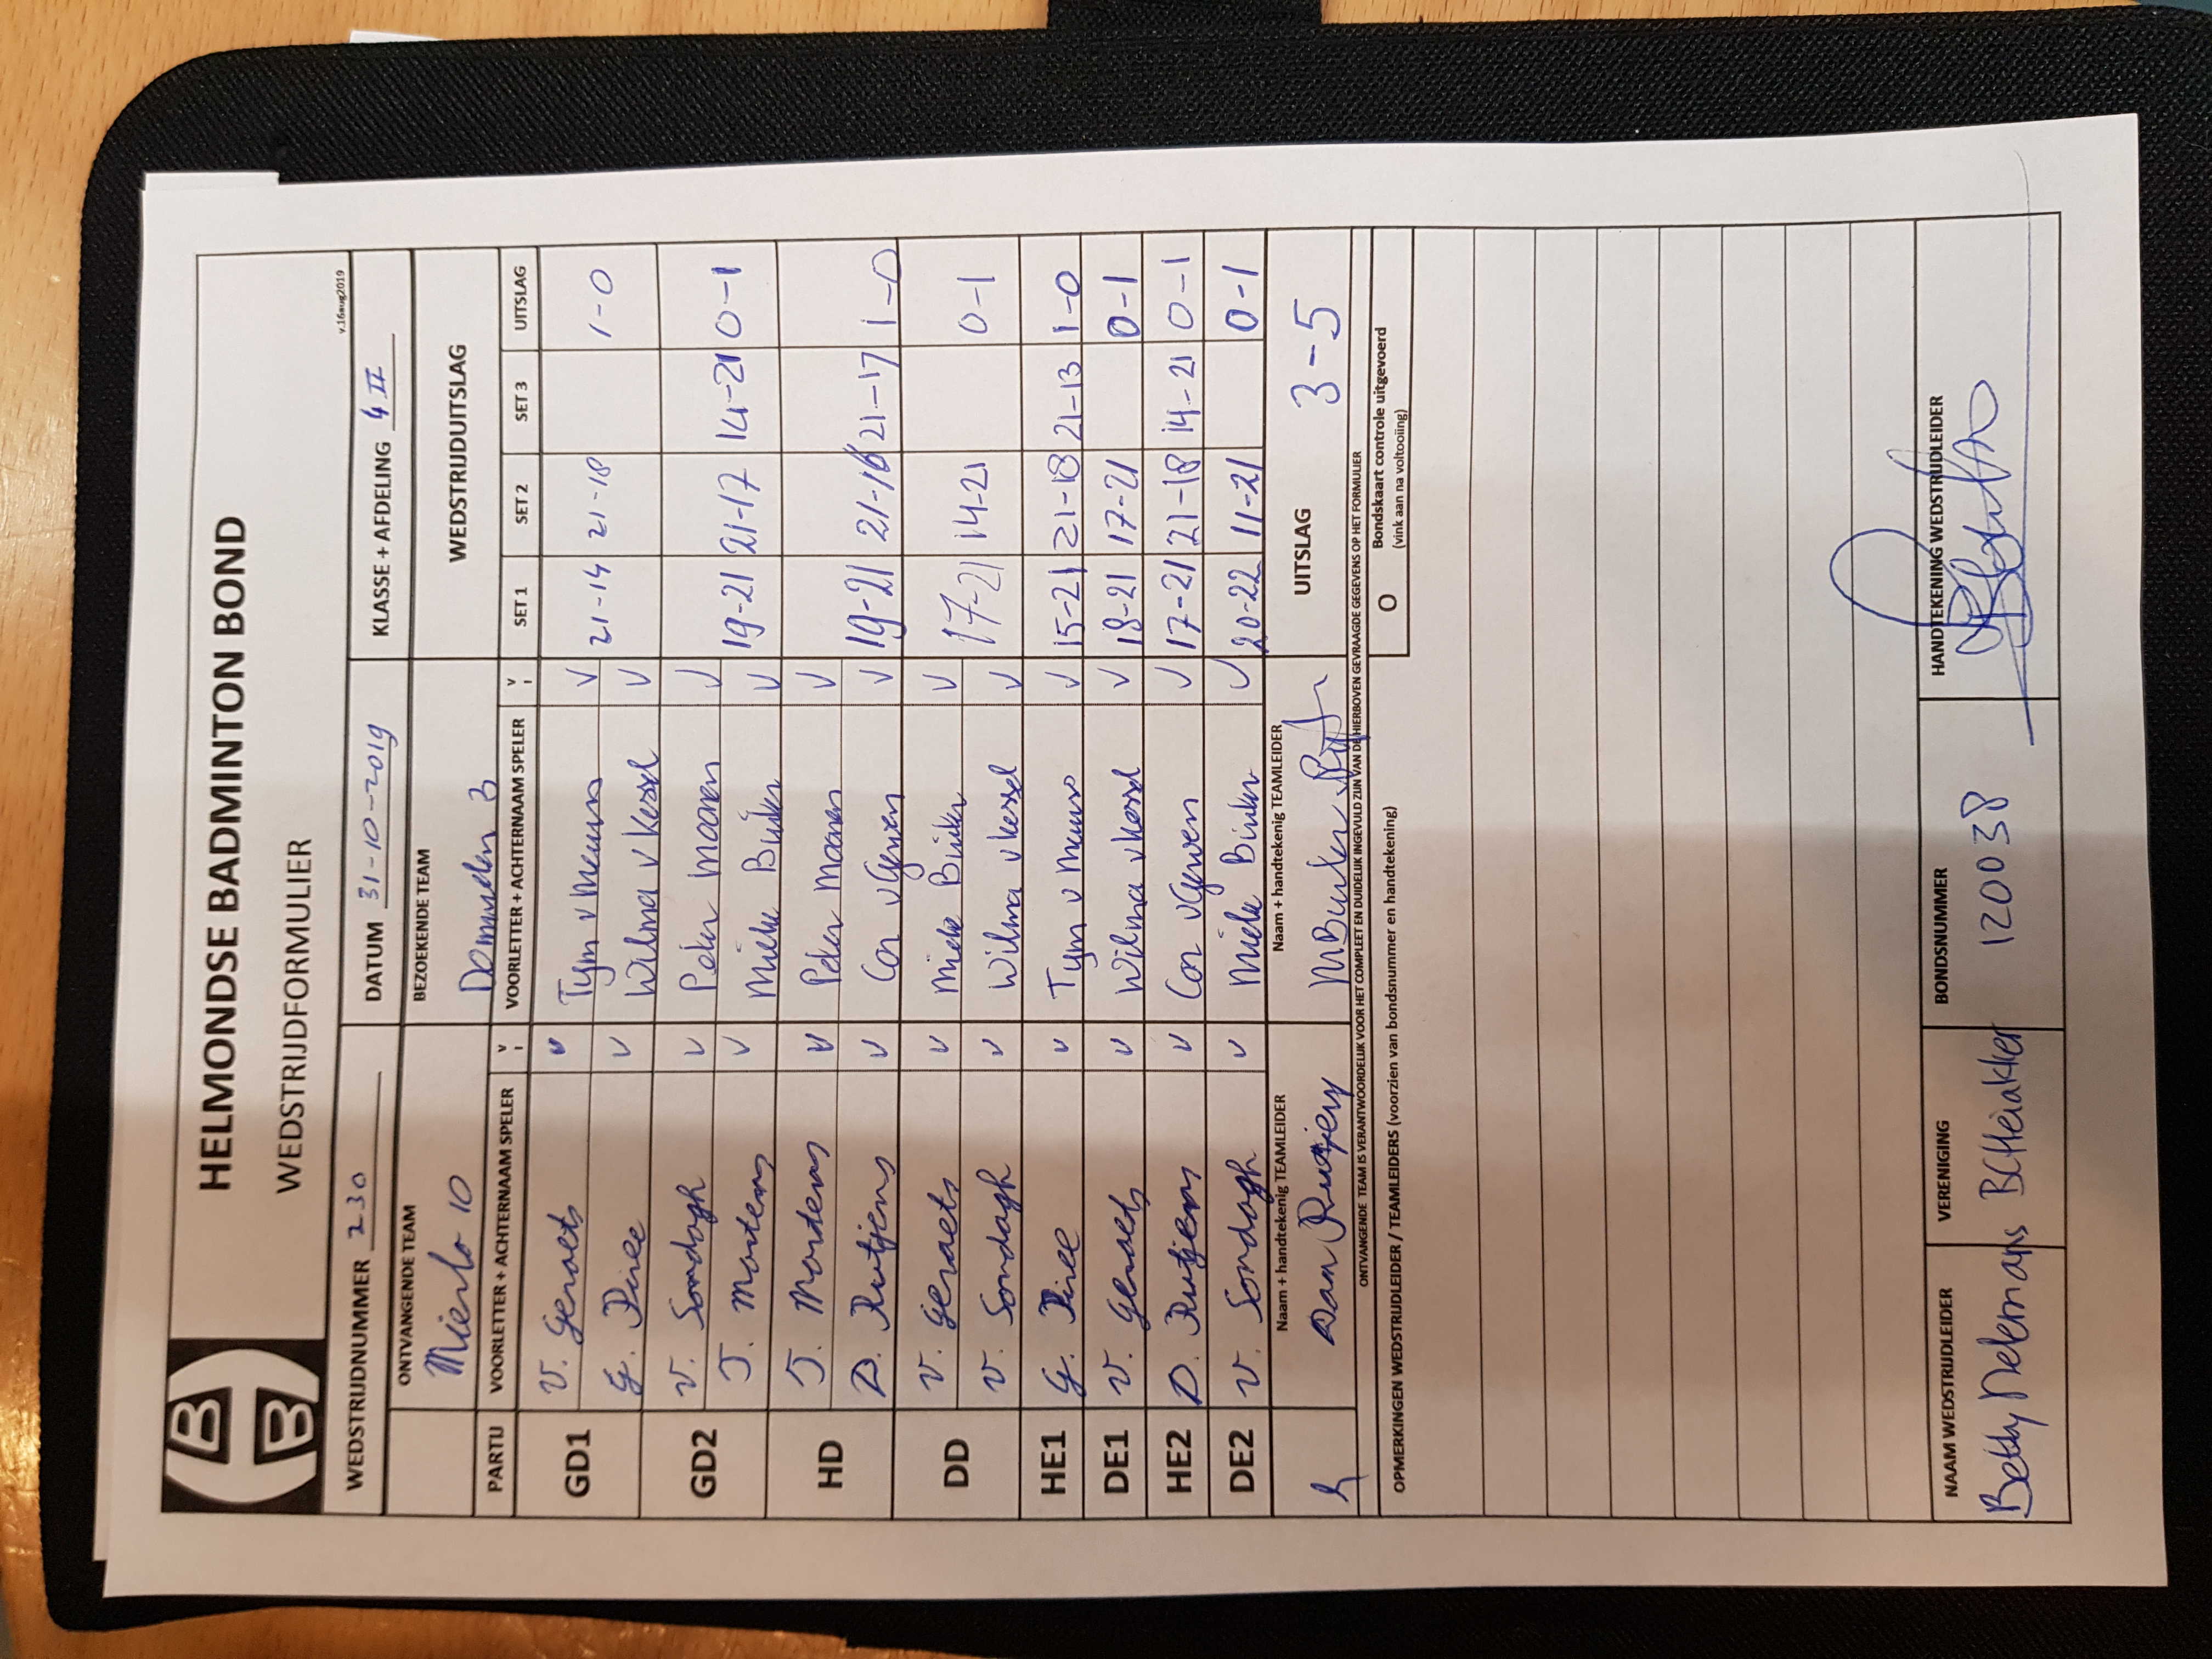 HELMONDSE BADMINTON BOND
WEDSTRIJDFORMULIER
v.16aug2019
WEDSTRIJDNUMMER 230 DATUM 31-10-2019 KLASSE + AFDELING 4 II
ONTVANGENDE TEAM BEZOEKENDE TEAM WEDSTRIJDUITSLAG
Mierlo 10 Dommelen 3
PARTIJ VOORLETTER + ACHTERNAAM SPELER V VOORLETTER + ACHTERNAAM SPELER V SET 1 SET 2 SET 3 UITSLAG
GD1 V. Geraets V Tym v Meurs V 21-14 21-18 1-0
G. Piree V Wilma v Kessel V
GD2 V. Sondagh V Peter Maanen V
J. Martens V Mieke Büiker V 19-21 21-17 14-21 0-1
HD J. Martens V Peter Maanen V
D. Rutjens V Cor vGerwen V 19-21 21-16 21-17 1-0
DD V. Geraets V Mieke Büiker V
V. Sondagh V Wilma vKessel V 17-21 14-21 0-1
HE1 G. Piree V Tym v Meurs V 15-21 21-18 21-13 1-0
DE1 V. Geraets V Wilma vKessel V 18-21 17-21 0-1
HE2 D. Rutjens V Cor vGerwen V 17-21 21-18 14-21 0-1
DE2 V. Sondagh V Mieke Büiker V 20-22 11-21 0-1
Naam + handtekenig TEAMLEIDER Naam + handtekenig TEAMLEIDER UITSLAG 3-5
Daan Rutjens
ONTVANGENDE TEAM IS VERANTWOORDELIJK VOOR HET COMPLEET EN DUIDELIJK INGEVULD ZIJN VAN DE HIERBOVEN GEVRAAGDE GEGEVENS OP HET FORMULIER
OPMERKINGEN WEDSTRIJDLEIDER / TEAMLEIDERS (voorzien van bondsnummer en handtekening)
O Bondskaart controle uitgevoerd
(vink aan na voltooiing)
NAAM WEDSTRIJDLEIDER VERENIGING BONDSNUMMER HANDTEKENING WEDSTRIJDLEIDER
Betty Dekmans BCHeiakker 120038